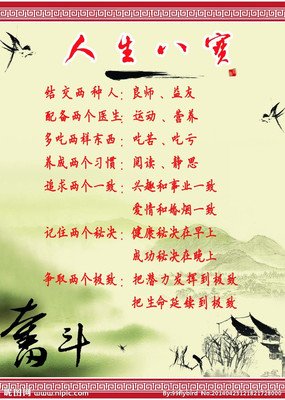 人生八宝
结交两种人：良师、益友
配备两个医生：运动、营养
多吃两样东西：吃苦、吃亏
养成两个习惯：阅读、静思
追求两个一致：兴趣和事业一致
爱情和婚烟一致
记住两个秘决：健康秘决在早上
成功秘决在晚上
争取两个极致：把潜力发挥到极致
把生命延续到极致
奋斗
昵图网 www.nipic.com
By:99flybird No.20140423121821728000